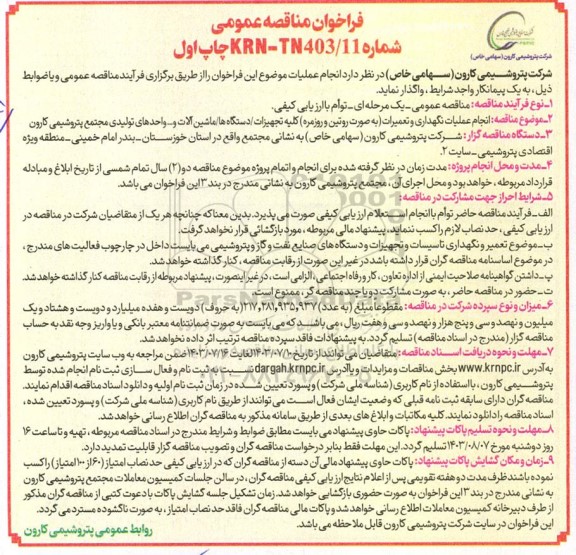 فراخوان مناقصه عمومی
شماره KRN-TN403/11 چاپ اول
شرکت پتروشیمی کارون (سهامی خاص)
شرکت پتروشیمی کارون (سهامی خاص) در نظر دارد انجام عملیات موضوع این فراخوان را از طریق برگزاری فرآیند مناقصه عمومی و با ضوابط
ذیل، به یک پیمانکار واجد شرایط، واگذار نماید.
۱-نوع فرآیند مناقصه: مناقصه عمومی - یک مرحله ای - توأم با ارزیابی کیفی.
۲-موضوع مناقصه: انجام عملیات نگهداری و تعمیرات (به صورت روتین و روزمره) کلیه تجهیزات / دستگاه ها/ماشین آلات و... واحدهای تولیدی مجتمع پتروشیمی کارون
۳-دستگاه مناقصه گزار: شرکت پتروشیمی کارون (سهامی خاص) به نشانی مجتمع واقع در استان خوزستان-بندر امام خمینی-منطقه ویژه
اقتصادی پتروشیمی-سایت ۲.
۴-مدت و محل انجام پروژه: مدت زمان در نظر گرفته شده برای انجام و اتمام پروژه موضوع مناقصه دو (۲) سال تمام شمسی از تاریخ ابلاغ و مبادله
قرارداد مربوطه، خواهد بود و محل اجرای آن، مجتمع پتروشیمی کارون به نشانی مندرج در بند ۳ این فراخوان می باشد.
۵-شرایط احراز جهت مشارکت در مناقصه:
الف-فرآیند مناقصه حاضر توأم با انجام استعلام ارزیابی کیفی صورت می پذیرد. بدین معنا که چنانچه هر یک از متقاضیان شرکت در مناقصه در
ارزیابی کیفی، حد نصاب لازم را کسب ننماید، پیشنهاد مالی مربوطه، مورد بازگشائی قرار نخواهد گرفت.
ب-موضوع تعمیر و نگهداری تاسیسات و تجهیزات و دستگاه های صنایع نفت و گاز و پتروشیمی می بایست داخل در چارچوب فعالیت های مندرج،
در موضوع اساسنامه مناقصه گران قرار داشته باشد در غیر این صورت از رقابت مناقصه، کنار گذاشته خواهد شد.
پ-داشتن گواهینامه صلاحیت ایمنی از اداره تعاون، کار و رفاه اجتماعی، الزامی است، در غیر اینصورت، پیشنهاد مربوطه از رقابت مناقصه کنار گذاشته خواهد شد.
ت-حضور در مناقصه حاضر، به صورت مشارکت دو یا چند مناقصه گر، ممنوع است.
۶-میزان و نوع سپرده شرکت در مناقصه: مقطوعا مبلغ (به عدد) ۲۱۷,۲۸۱,۹۳۵,۹۳۷ (به حروف) دویست و هفده میلیارد و دویست و هشتاد و یک
میلیون و نهصد و سی و پنج هزار و نهصد و سی و هفت ریال، می باشد که می بایست به صورت ضمانتنامه معتبر بانکی و یا واریز وجه نقد به حساب
مناقصه گزار (مندرج در اسناد مناقصه) تسلیم گردد. به پیشنهادات فاقد سپرده مناقصه ترتیب اثر داده نخواهد شد.
۷-مهلت و نحوه دریافت اسناد مناقصه: متقاضیان می توانند از تاریخ ۱۴۰۳/۰۷/۱۰ لغایت ۱۴۰۳/۰۷/۱۶ ضمن مراجعه به وب سایت پتروشیمی کارون
به آدرس www.krnpc.ir بخش مناقصات و مزایدات و یا آدرس dargah.krnpc.ir نسبت به ثبت نام و فعال سازی ثبت نام انجام شده توسط
پتروشیمی کارون، با استفاده از نام کاربری (شناسه ملی شرکت) و پسورد تعیین شده در زمان ثبت نام اولیه و دانلود اسناد مناقصه اقدام نمایند.
مناقصه گران دارای سابقه ثبت نامه قبلی که وضعیت ایشان فعال است می توانند از طریق نام کاربری (شناسه ملی شرکت) و پسورد تعیین شده،
اسناد مناقصه را دانلود نمایند. کلیه مکاتبات و ابلاغ های بعدی از طریق سامانه مذکور به مناقصه گران اطلاع رسانی خواهد شد.
۸-مهلت و نحوه تسلیم پاکات پیشنهاد: پاکات حاوی پیشنهاد می بایست مطابق ضوابط و شرایط مندرج در اسناد مناقصه مربوطه، تهیه و تا ساعت ۱۶
روز دوشنبه مورخ ۱۴۰۳/۰۸/۰۷ تسلیم گردد. این مهلت فقط بنابر درخواست مناقصه گران و تصویب مناقصه گزار قابلیت تمدید دارد.
۹-زمان و مکان گشایش پاکات پیشنهاد: پاکات حاوی پیشنهاد مالی آن دسته از مناقصه گران که در ارزیابی کیفی حد نصاب امتیاز (۶۰ از ۱۰۰ امتیاز) را کسب
نموده باشند ظرف مدت دو هفته تقویمی پس از اعلام نتایج ارزیابی کیفی مناقصه گران، در سالن جلسات کمیسیون معاملات مجتمع پتروشیمی کارون
به نشانی مندرج در بند ۳ این فراخوان به صورت حضوری بازگشایی خواهد شد. زمان تشکیل جلسه گشایش پاکات با دعوت کتبی از مناقصه گران مذکور
از طرف دبیرخانه کمیسیون معاملات اطلاع رسانی خواهد شد و پاکات مالی مناقصه گران فاقد حد نصاب امتیاز، به صورت ناگشوده مسترد می گردد.
این فراخوان در سایت شرکت پتروشیمی کارون قابل ملاحظه می باشد.
روابط عمومی پتروشیمی کارون